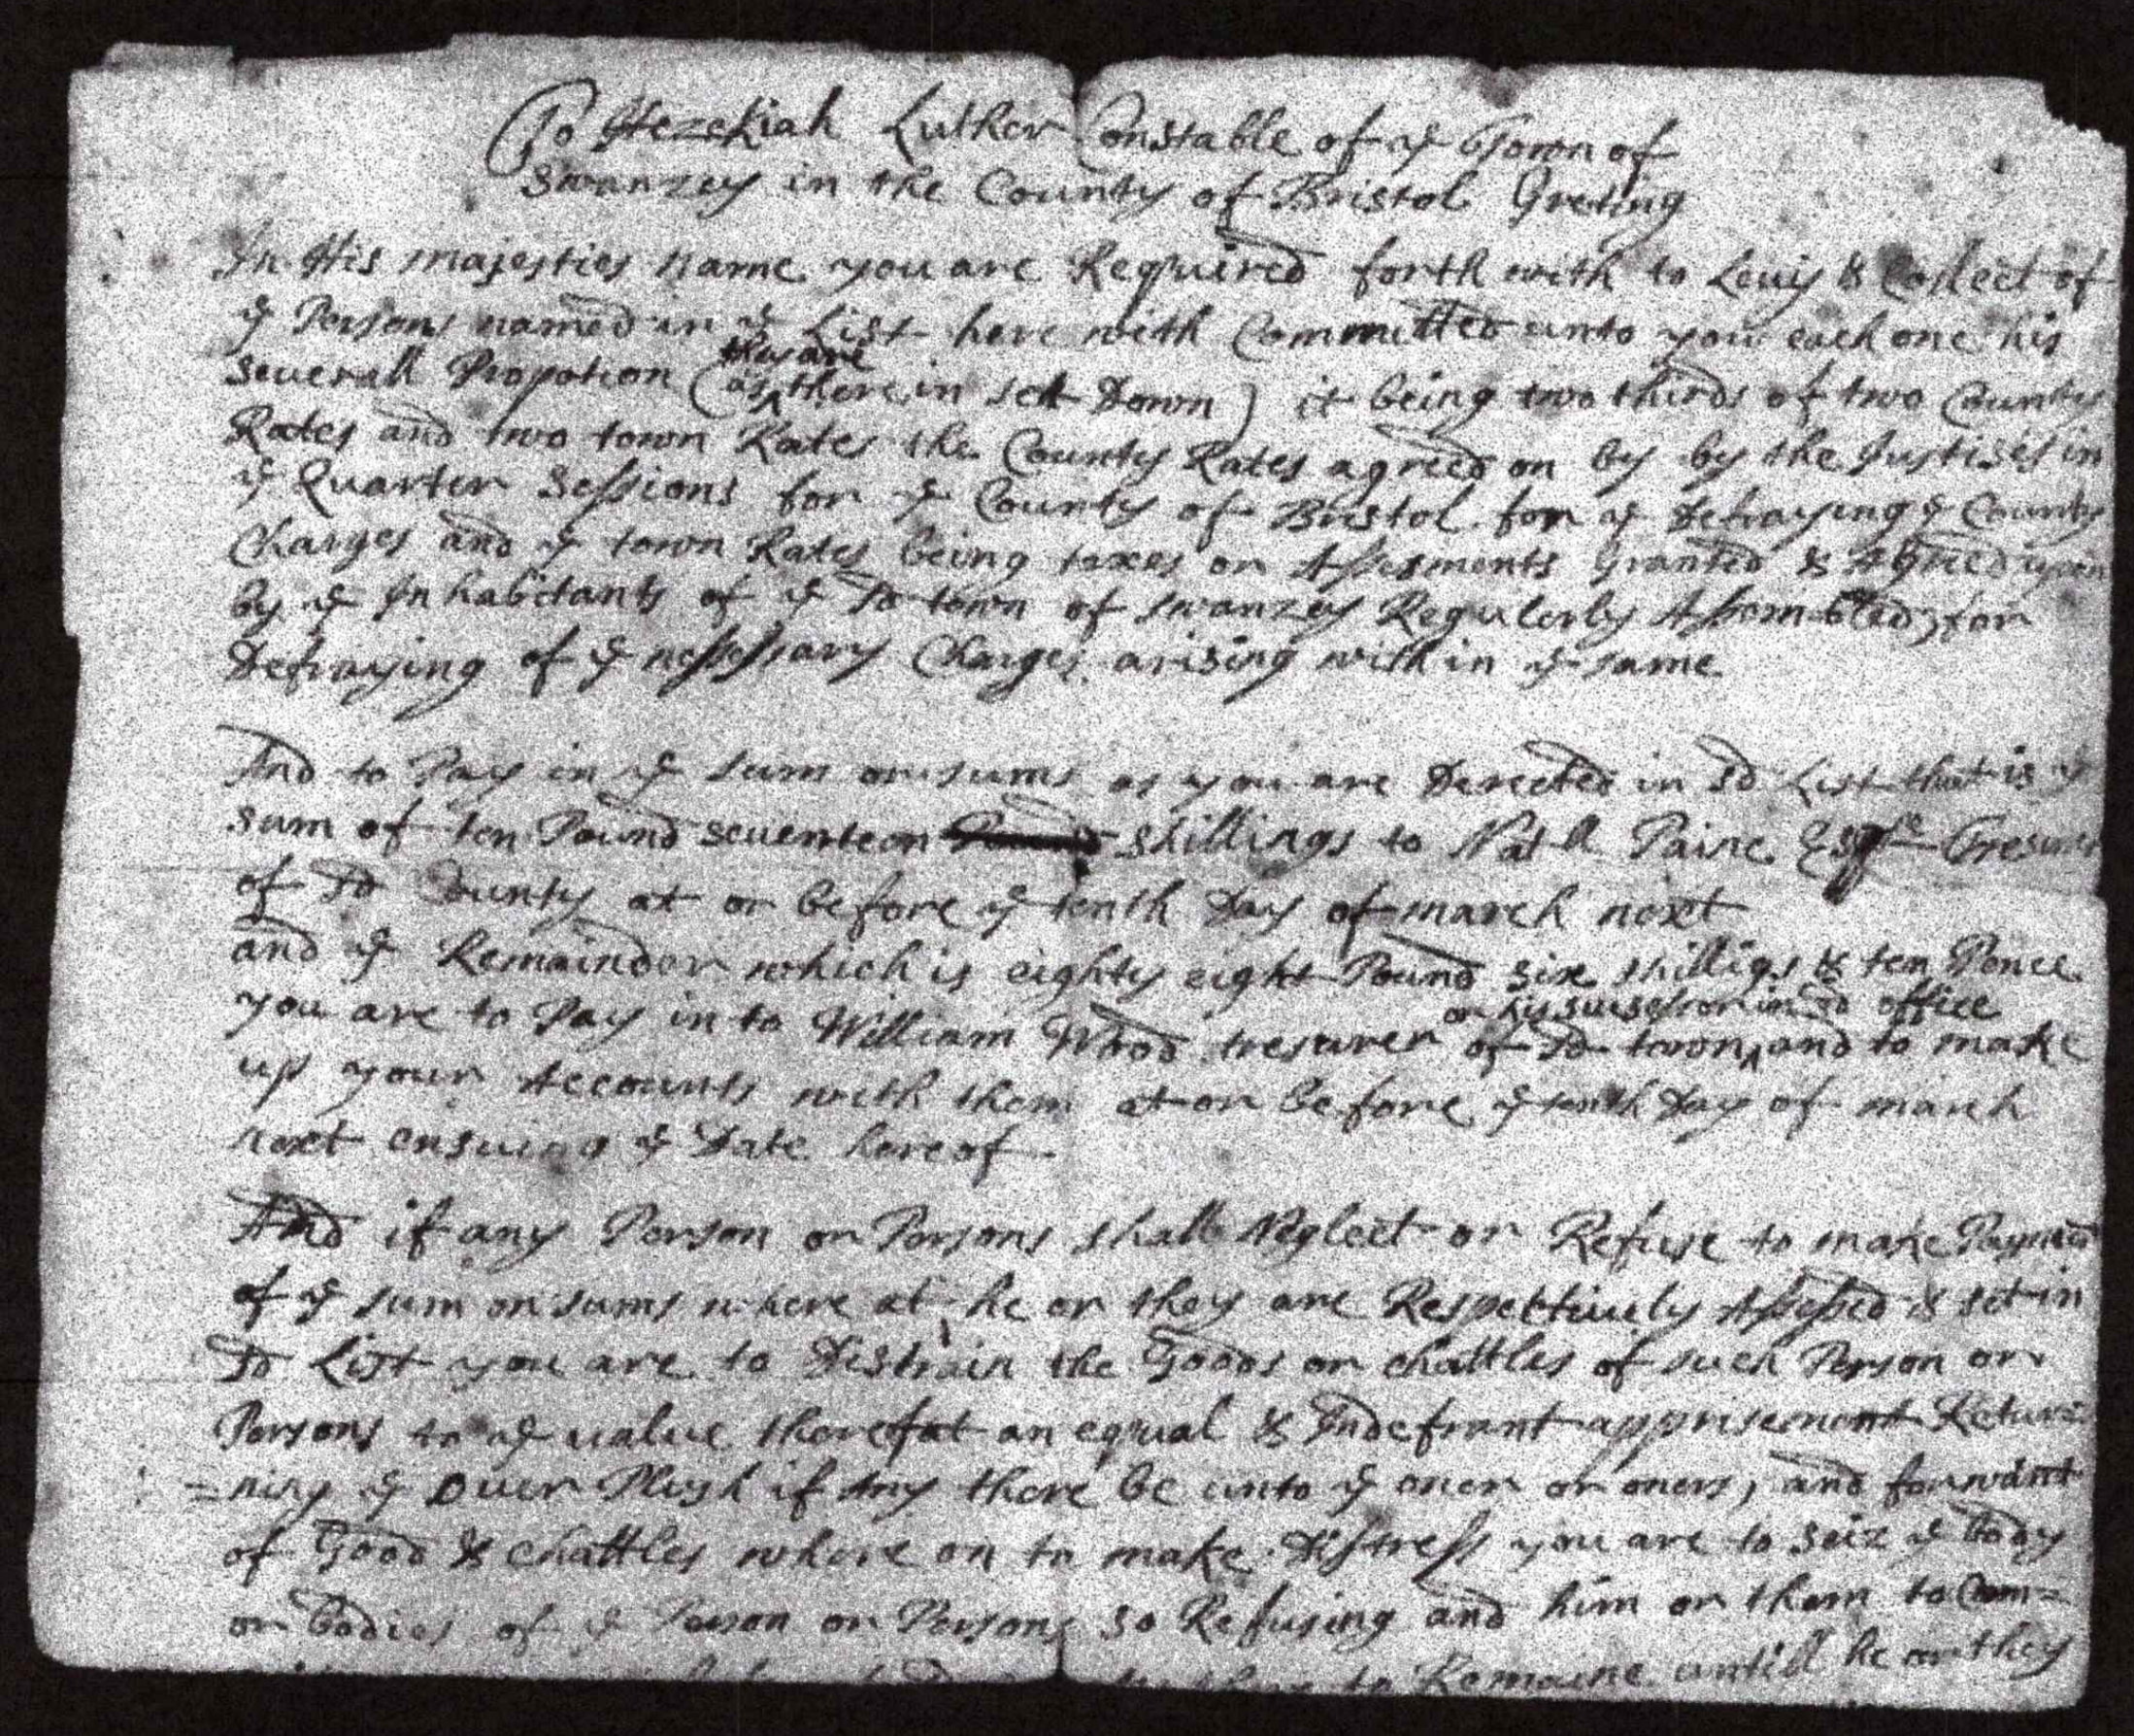 To Hezekiah Luther Constable of ye Town of
Swanzey in the County of Bristol Greting
In His majesties name you are Required forth with to Leuy & Collect of
ye Persons named in ye List here with Committed unto you each one his
they are
seuerall Propotion (as there in sett Down) it being two thirds of two County
Rates and two town Rates the County Rates agreed on by by the Justises in
ye Quarter Sessions for ye County of Bristol for ye Defraying ye County
Charges and ye town Rates being taxes or Assesments Granted & Agreed upon
by ye Inhabitants of ye sd town of swanzey Regulerly Assembled, for
Defraying of ye nessessary Charges arising with in ye same
And to Pay in ye sum or sums as you are Derected in sd List that is ye
sum of ten Pound seuenteen shillings to Nath ll Paine Esqr Tresurer
of sd County at or before ye tenth Day of march next
and ye Remainder which is eighty eight Pound six shilligs & ten Pence
or his sucsessor in sd office
you are to Pay in to William Wood tresurer of sd town and to make
up your Accounts with them at or before ye tenth Day of march
next ensuing ye Date hereof
And if any Person or Persons shall Neglect or Refuse to make Payment
of ye sum or sums where at he or they are Respectiuely Assessed & set in
sd List you are to Distrain the Goods or chattles of such Person or
Persons to ye value thereof at an equal & Indefrant apprisement Retur=
=ning ye Ouer Plush if Any there be unto ye oner or oners, and for want
of Good & chattles where on to make Distress you are to seiz ye body
or bodies of ye Person or Persons so Refusing and him or them to Com=
to Remaine untill he or they